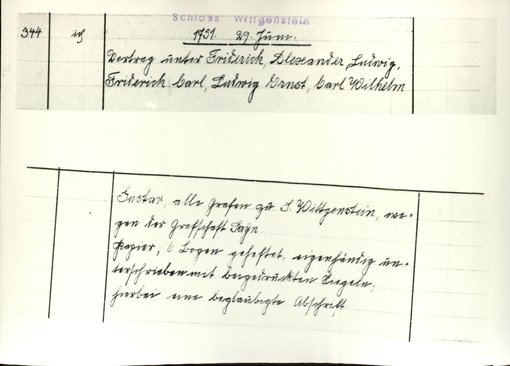 Schloss Wittgenstein
344
1751. 29. Juni.
Vertrag unter Friderich, Alexander, Ludwig,
Friderich Carl, Ludwig Ernst, Carl Wilhelm
Gustav, alle Grafen zu S. Wittgenstein, we-
gen der Grafschaft Sayn.
Papier, 6 Bogen geheftet, eigenhändig un-
terschrieben mit beigedruckten Siegeln;
hierbei eine beglaubigte Abschrift